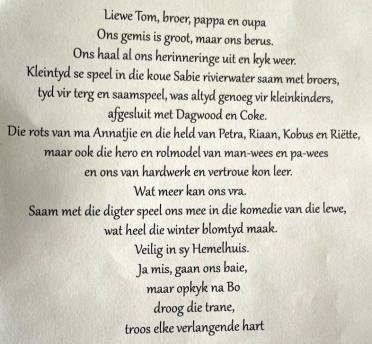 Liewe Tom, broer, pappa en oupa
Ons gemis is groot, maar ons berus.
Ons haal al ons herinneringe uit en kyk weer.
Kleintyd se speel in die koue Sabie rivierwater saam met broers,
tyd vir terg en saamspeel, was altyd genoeg vir kleinkinders,
afgesluit met Dagwood en Coke.
Die rots van ma Annatjie en die held van Petra, Riaan, Kobus en Riëtte,
maar ook die hero en rolmodel van man-wees en pa-wees
en ons van hardwerk en vertroue kon leer.
Wat meer kan ons vra.
Saam met die digter speel ons mee in die komedie van die lewe,
wat heel die winter blomtyd maak.
Veilig in sy Hemelhuis.
Ja mis, gaan ons baie,
maar opkyk na Bo
droog die trane,
troos elke verlangende hart